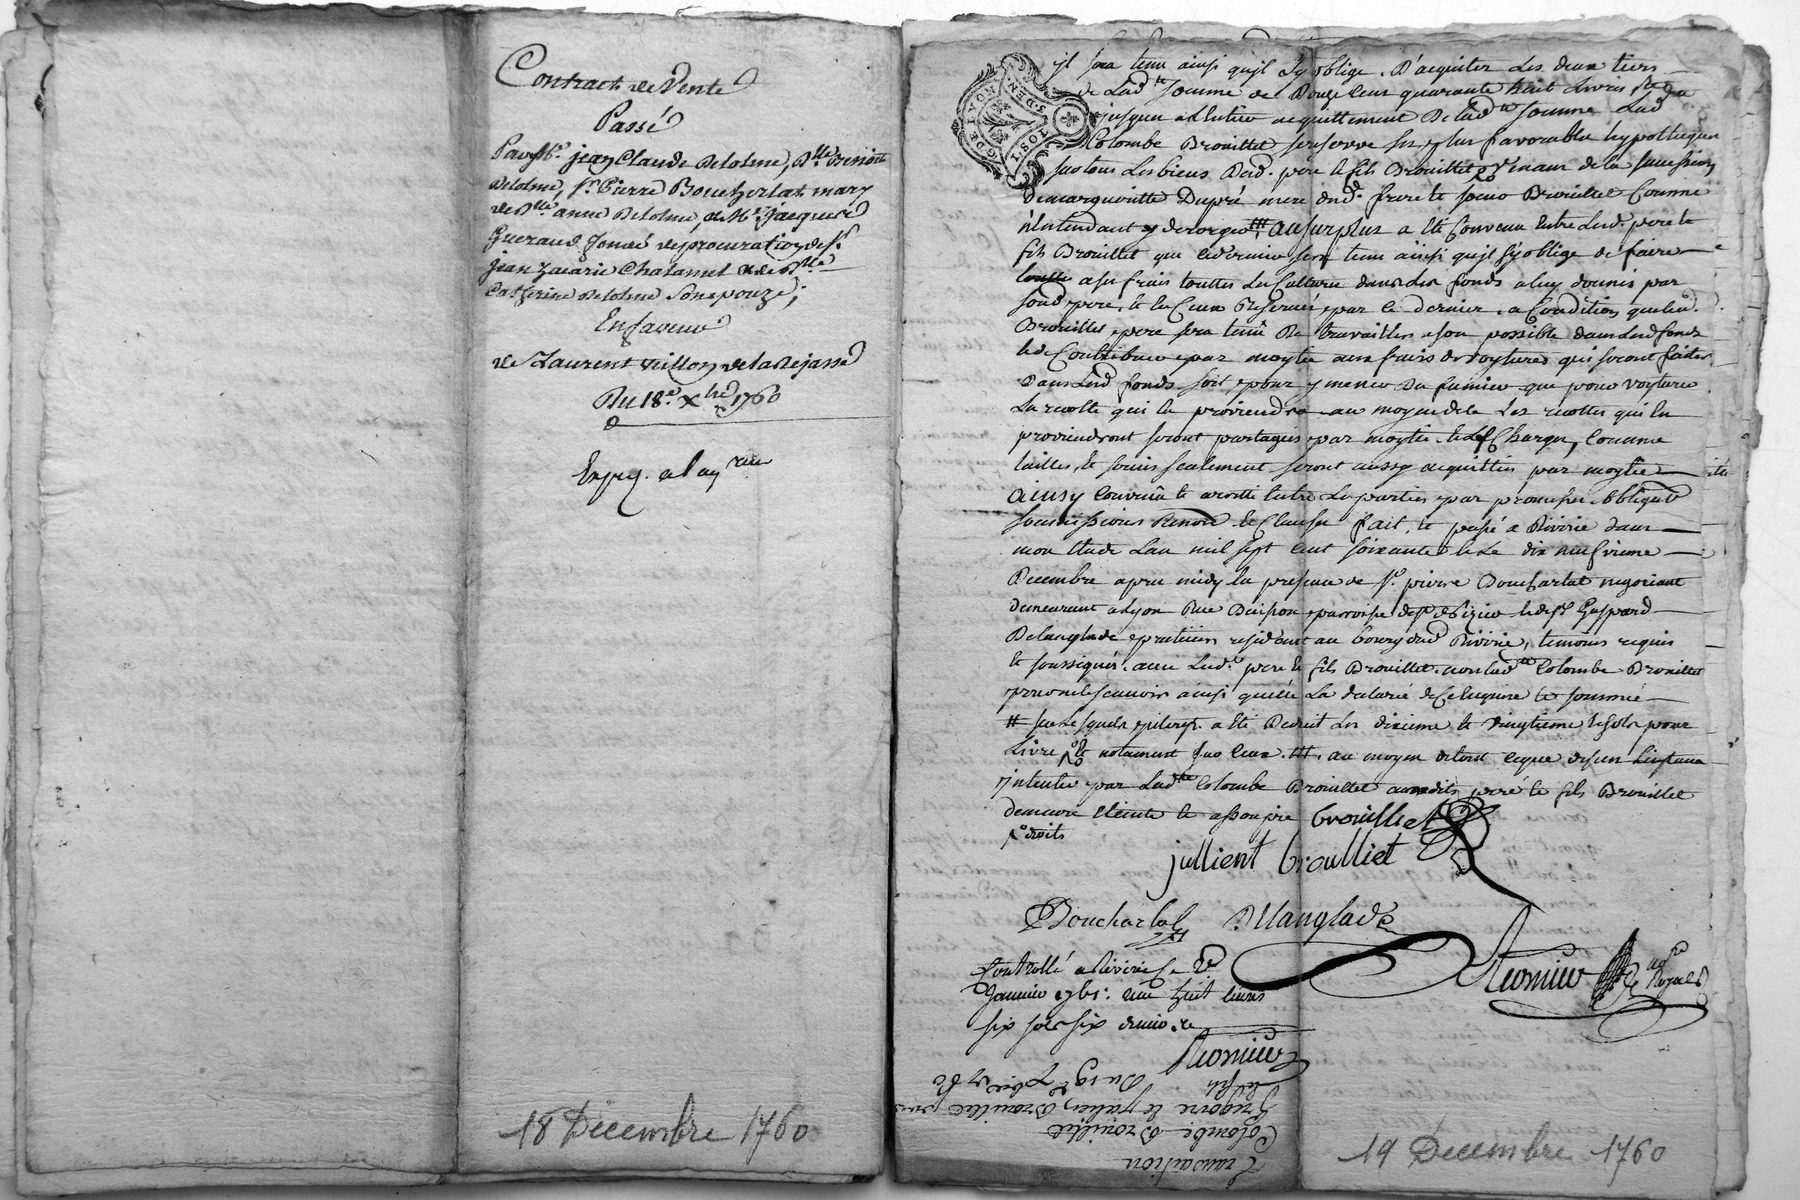 Contract de Vente
Passé
Par Sr. jean Claude Delolme, Dlle Benoite
Delolme, Sr. Pierre Boucharlat mary
de Dlle anne Delolme, & Me. Jacques
Gueraud fondé de procuration de Sr.
jean Zacarie Chatanet & de Dlle
Catherine Delolme son epouze;
En faveur
de Laurent Villon de la Rejasse
Du 18e. Xbre 1760
Exp.
18 Décembre 1760
GDE LYON
SOLS DEN.
il sera tenu ainsi qu'il s'y oblige. D'acquitter les deux tiers
de Ladte somme de Douze cent quarante huit livres
jusques a l'entier acquittement de Ladte somme Lad
Colombe Brouillet se reserve ses plus favorables hypotheques
sur tous les biens Desd. pere & fils Brouillet provenant de la succession
de margueritte Dupré mere dud. frere & soeur Brouillet Comme
n'entendant y deroger ### au surplus a été Convenu entre lesd. pere &
fils Brouillet que ce dernier sera tenu ainsi qu'il s'y oblige de faire
a ses frais touttes les Cultures dans les fonds a luy donnés par
sond. pere, & en Ceux Reservés par ce dernier, a Condition que led.
Brouillet pere sera tenu De travailler a son possible dans lesd. fonds
& de Contribuer par moytié aux frais des voytures qui seront faites
Dans lesd fonds soit pour y mener Du fumier que pour voyturer
La recolte qui en proviendra au moyen de ce Les recoltes qui en
proviendront seront partagées par moytié & les Charges, Comme
tailles, & servis seulement seront aussy acquittées par moytié
Ainsy Convenu & arretté entre les parties par promesses obligaons
soumissions Renons & Clauses fait, & passé a Riverie dans
mon etude L'an mil sept cent soixante & Le dix neufvieme
Decembre apres midy en presence de Sr. pierre Boucharlat negociant
demeurant a Lyon Rue Buisson paroisse de St. Nizier & de Sr. Gaspard
Delanglade praticien residant au bourg dud Riverie, temoins requis
& soussignés avec Lesd. pere & fils Brouillet non Ladte Colombe Brouillet
pour ne le scavoir ainsi qu'elle L'a declaré de Ce enquise & sommée
# sur Lesquels a été Deduit Les dixieme & vingtieme & sols pour
Livre & notament sur ceux. ###. au moyen de tout ce que dessus L'instance
intentée par Ladte Colombe Brouillet auxdits peré & fils Brouillet
demeure éteinte & assoupie brouillet
droits
jullient broulliet
Boucharlat Delanglade
Controllé a Riverie le 2e.
Janvier 1761. Reçu huit livres
six sols six deniers
19 Décembre 1760
Transaction
Colombe Brouillet
Gregoire & Julien Brouillet